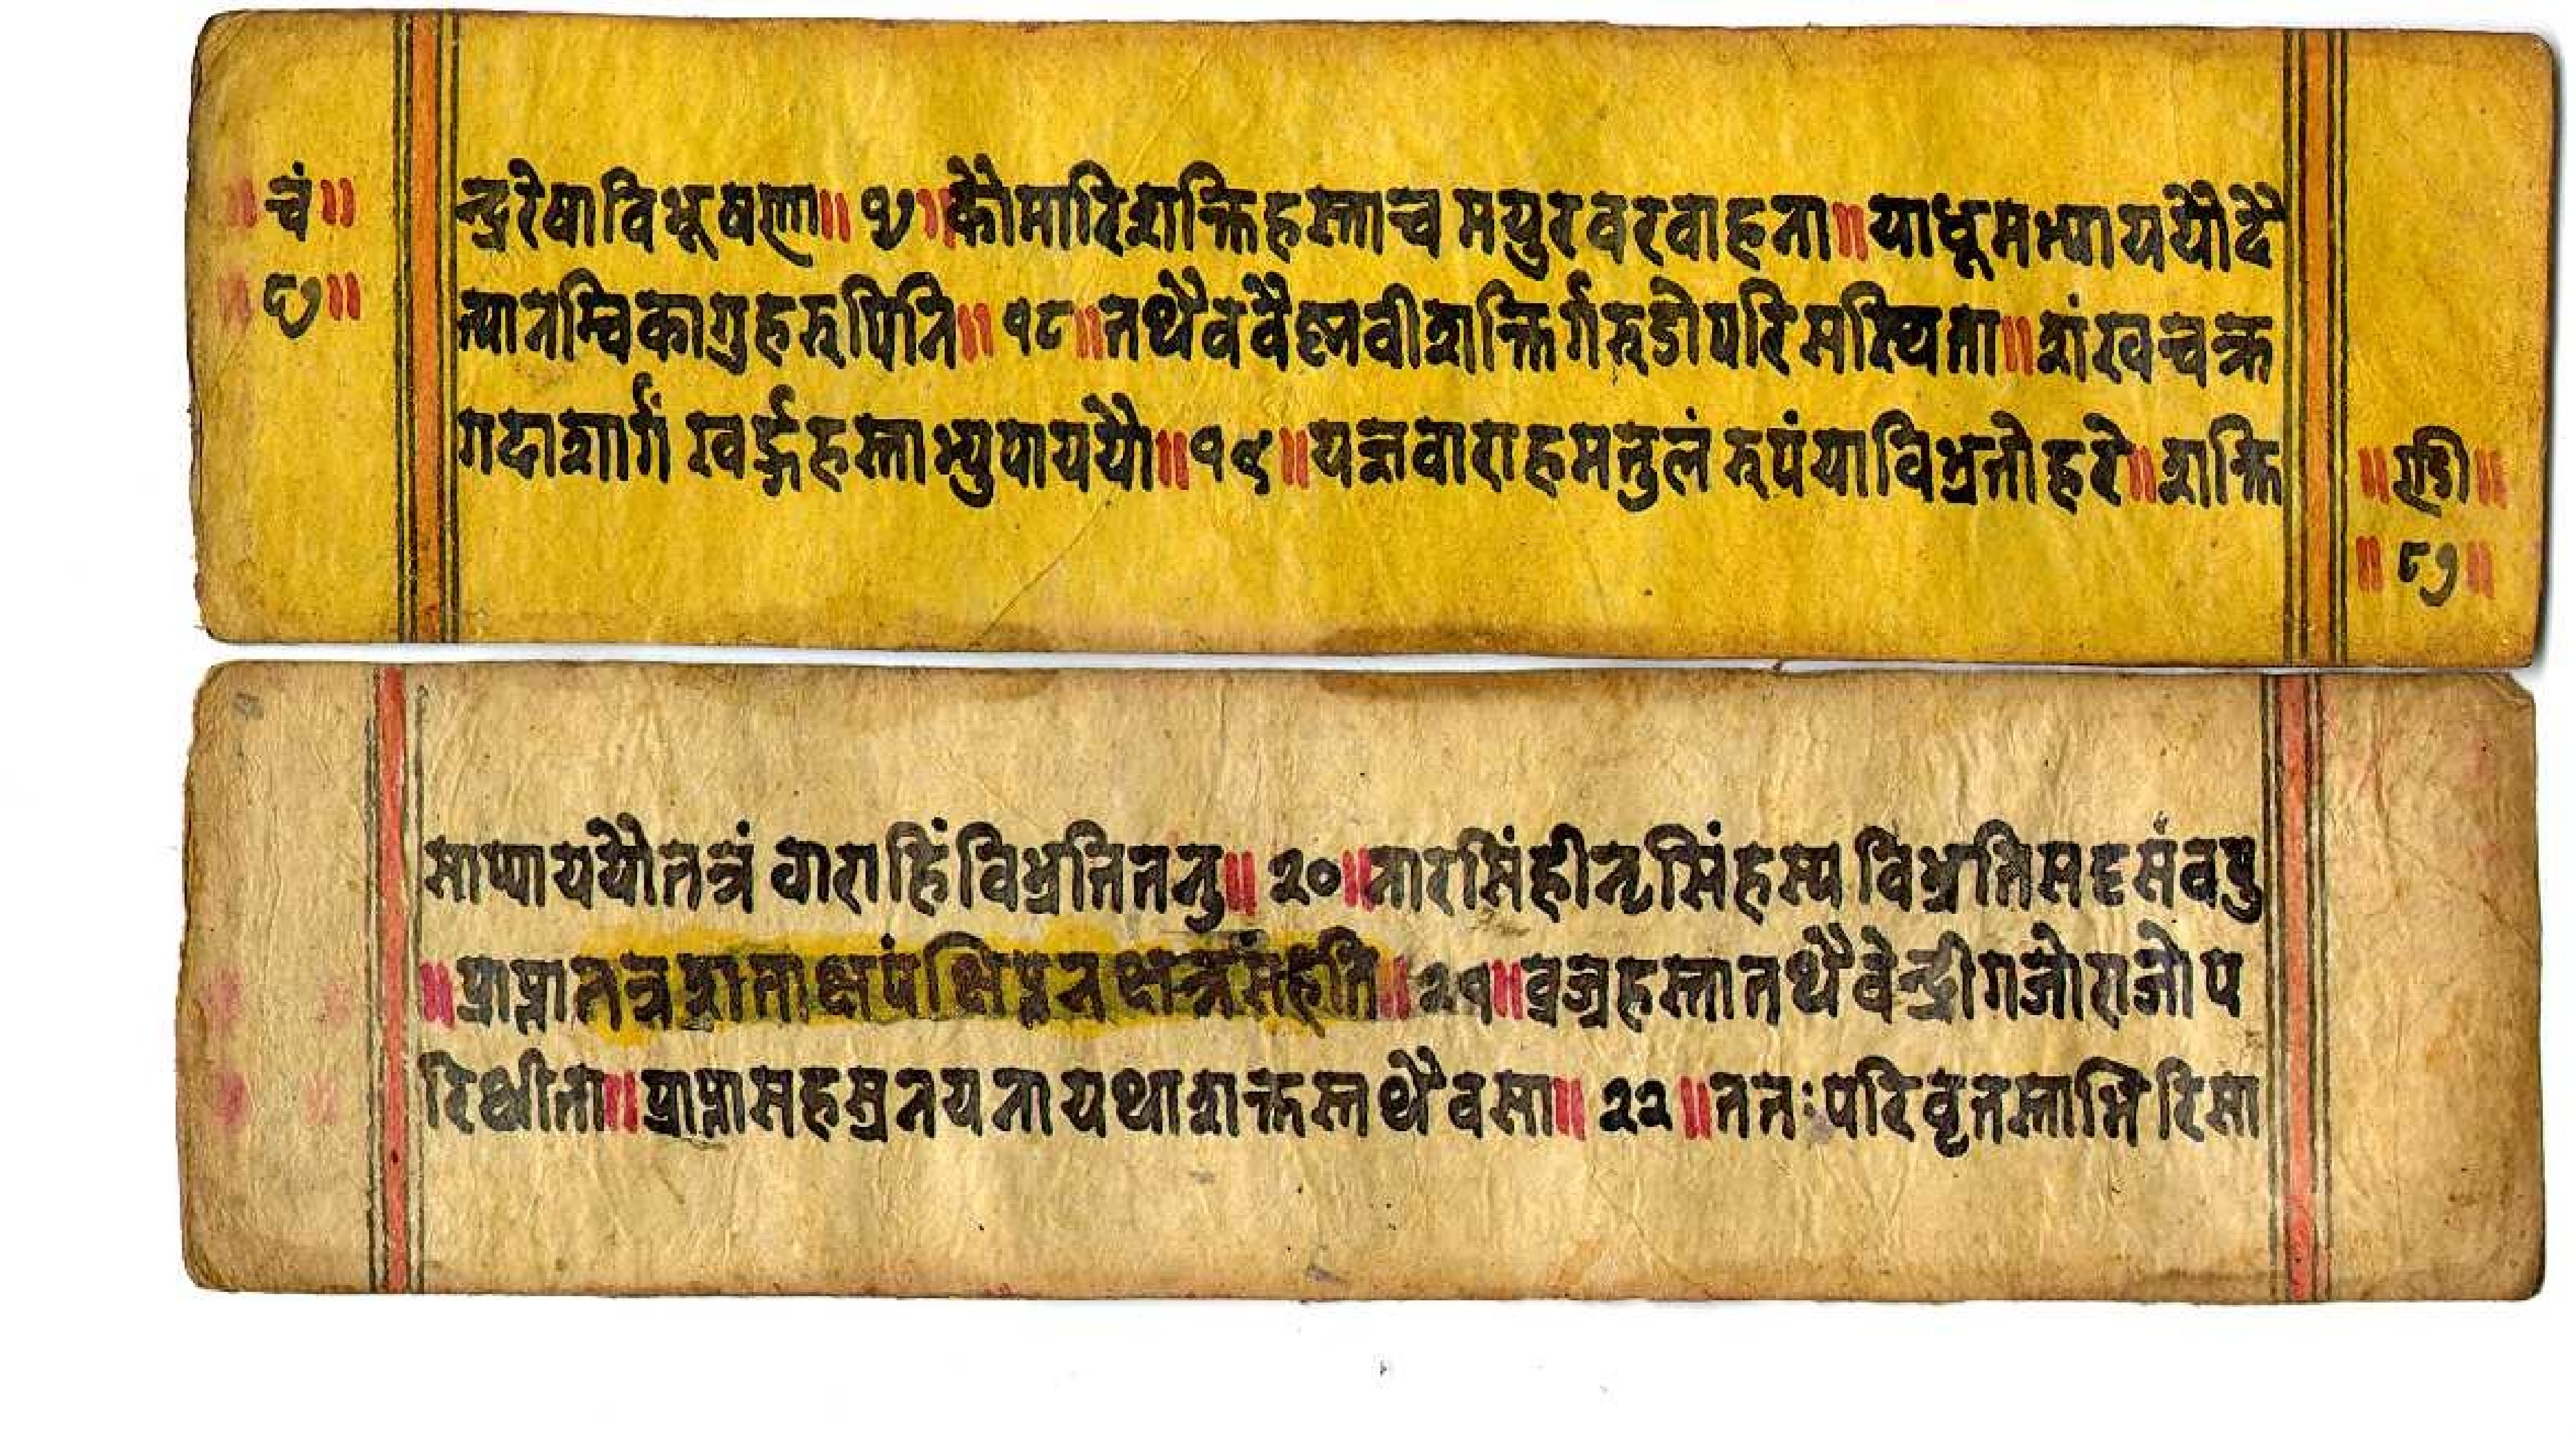 ॥ चं ॥
॥ ८७ ॥
न्द्ररेषाविभूषणा॥ १७॥कौमारिशक्तिहस्ताच मयुरवरवाहना॥याधूमभ्याययौदै
त्यानम्बिकागुहरूपिनि॥ १८॥तथैववैष्नवीशक्तिर्गरुडोपरिसस्थिता॥शंखचक्र
गदाशार्गं खर्ड्गहस्ताभ्युपाययौ॥१९॥यज्ञवाराहमतुलं रुपंयाविभ्रतोहरे॥शक्ति
॥ण्डी॥
॥ ८७ ॥
साप्याययौतत्रं वाराहिंविभ्रतितनु॥ २०॥नारसिंहीनृसिंहस्य विभ्रतिसदृसंवपु
॥प्राप्नातत्रशताक्षपंक्षिप्तनक्षत्रसंहति॥ २१॥वज्रहस्तातथैवेन्द्रीगजोराजोप
रिथीता॥प्राप्नासहस्रनयनायथाशक्तस्तथैवसा॥ २२॥ततःपरिवृतस्ताभिरिसा